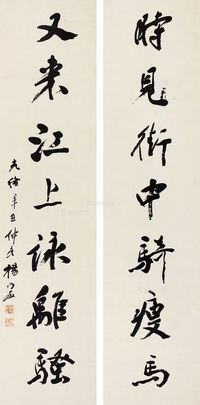 時見街中騎瘦馬
又來江上詠離騷
光緒辛丑仲冬楊守敬